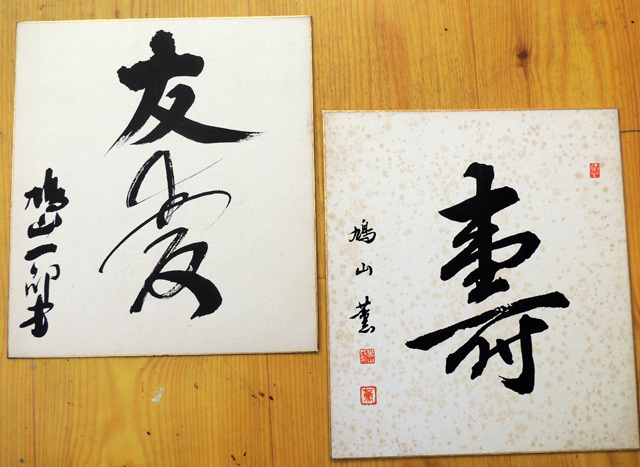 友愛
鳩山一郎書
壽
鳩山薫